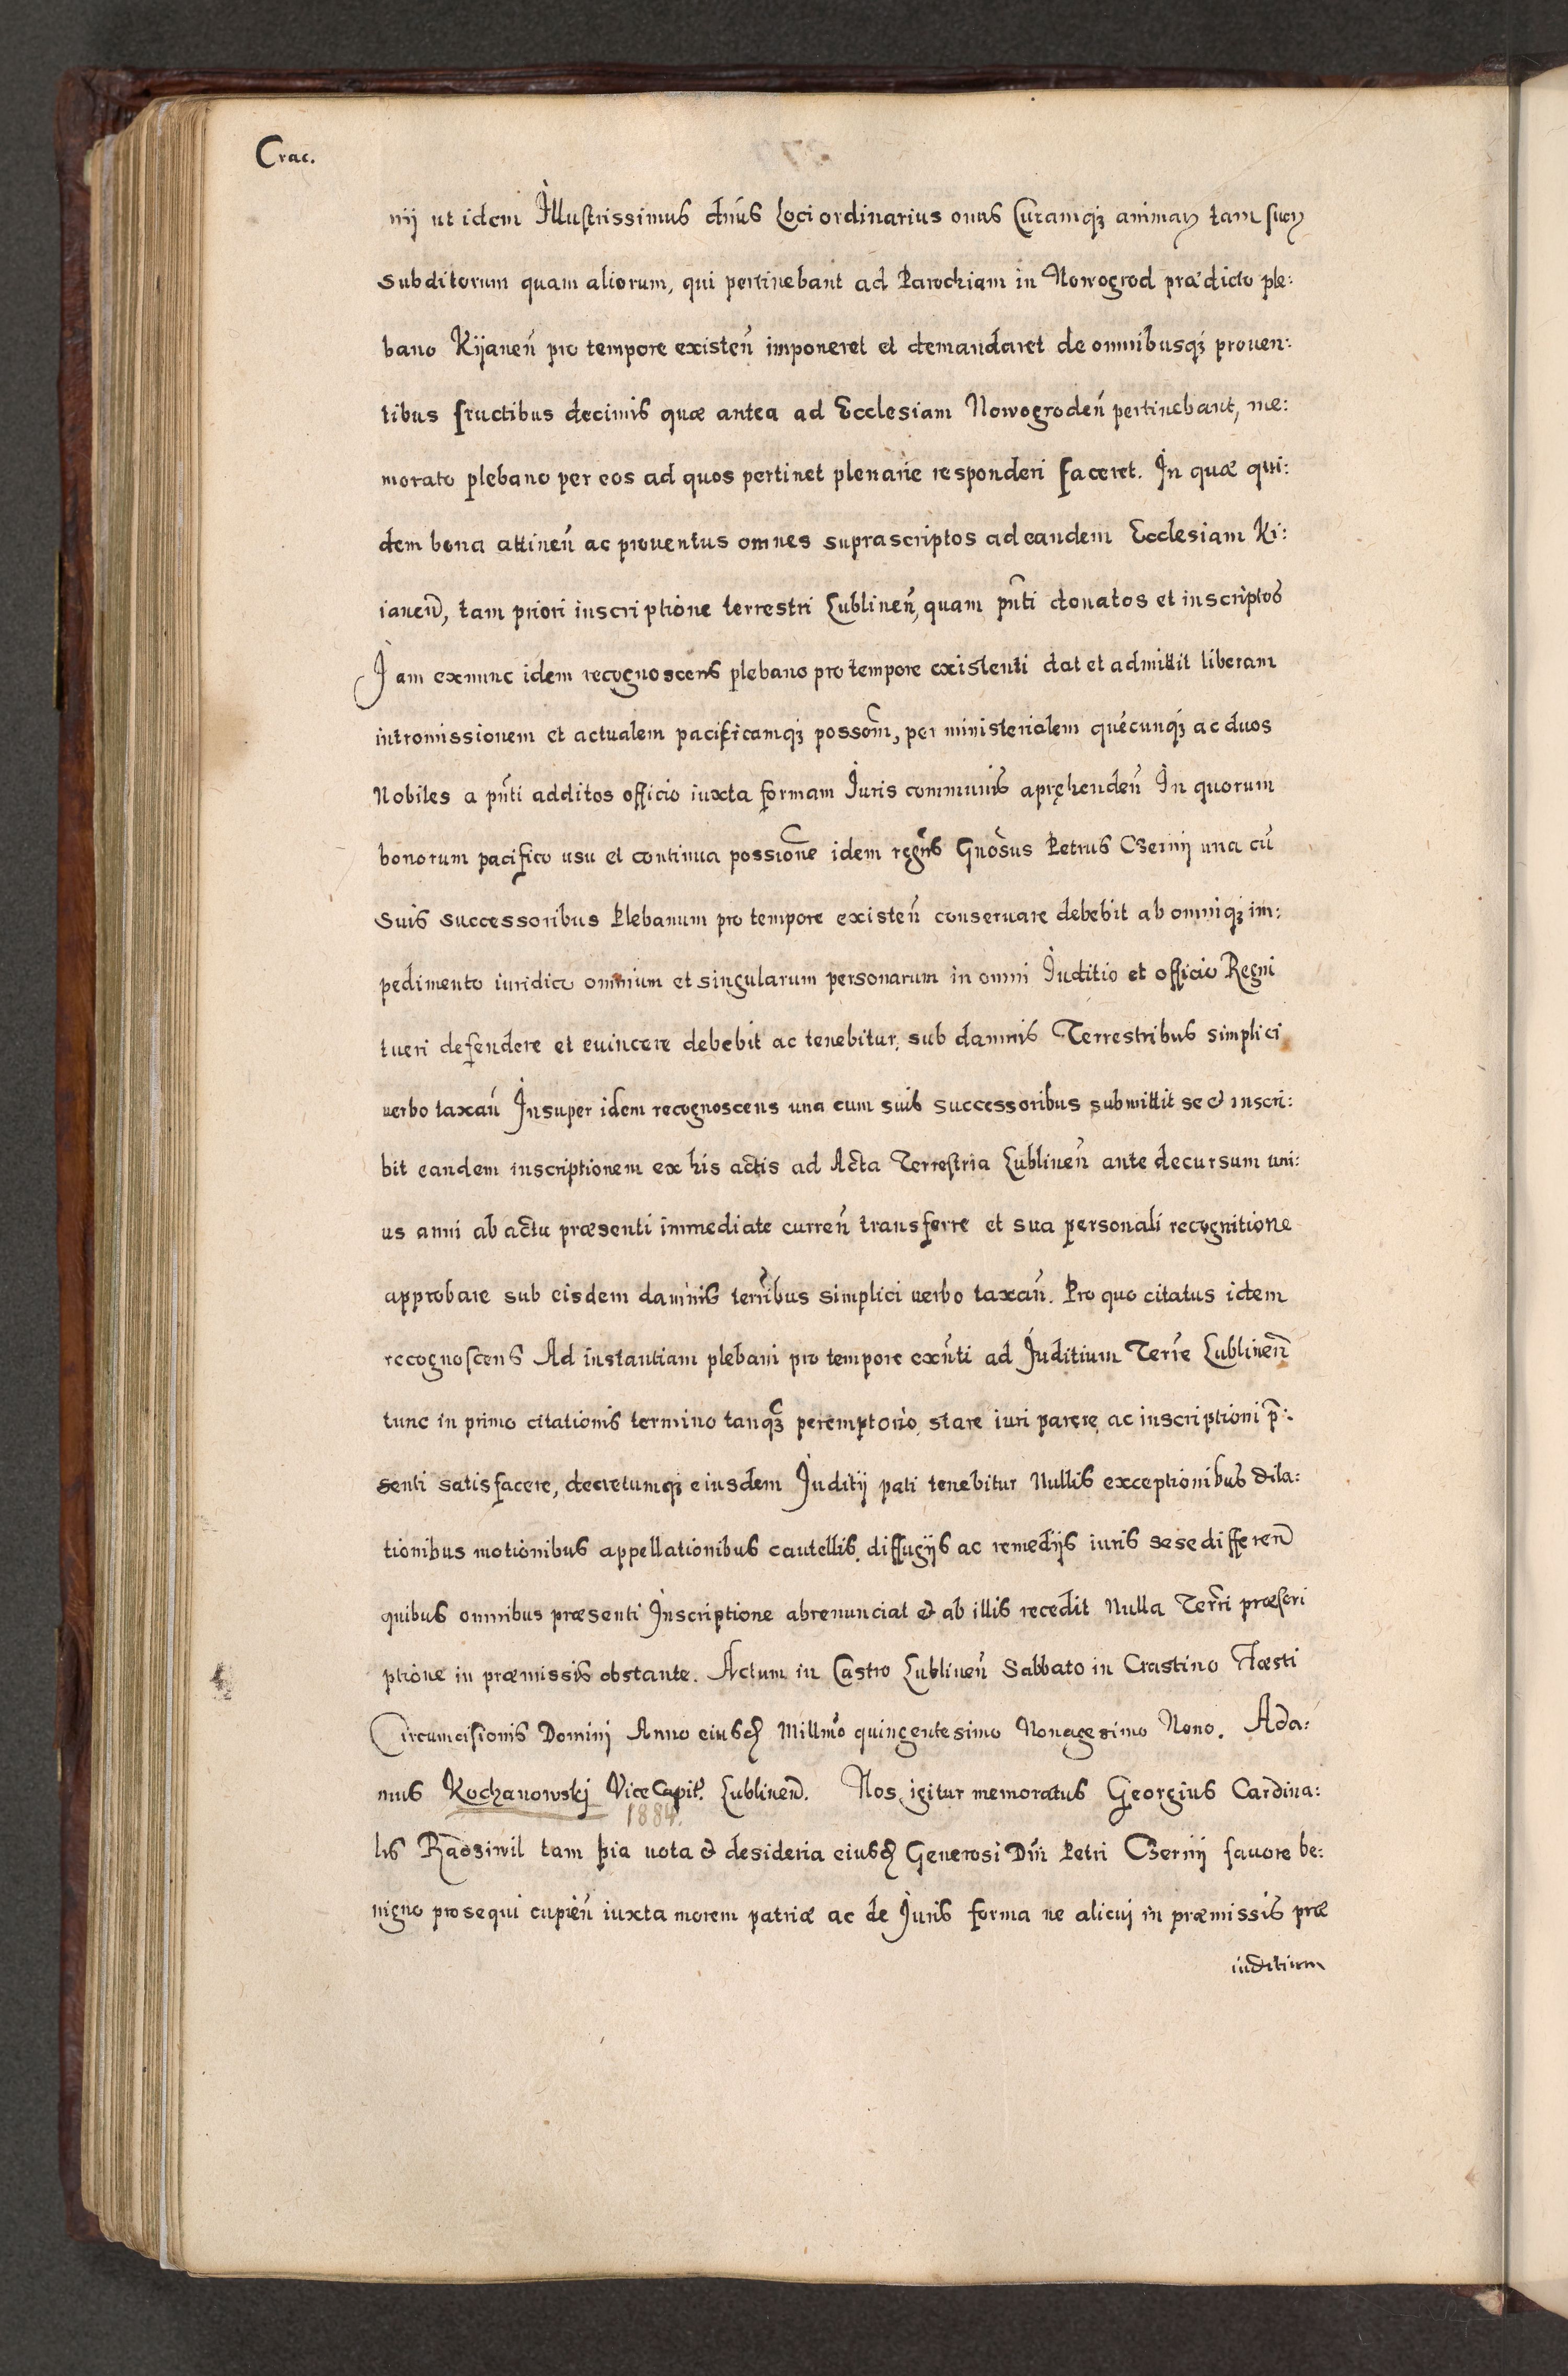 Crac.
nij ut idem Illustrissimus dñus Loci ordinarius onus Curamqȝ animaꝝ tam suoꝝ
subditorum quam aliorum, qui pertinebant ad Parochiam in Nowogrod prædicto ple:
bano Kijaneñ pro tempore existeñ imponeret et demandaret de omnibusqȝ proven:
tibus fructibus decimis quæ antea ad Ecclesiam Nowogrodeñ pertinebant, me:
morato plebano per eos ad quos pertinet plenarie responderi faceret. In quæ qui:
dem bona attineñ ac proventus omnes suprascriptos ad eandem Ecclesiam Ki:
ianeñ, tam priori inscriptione terrestri Lublineñ, quam pñti donatos et inscriptos
Jam exnunc idem recognoscens plebano pro tempore existenti dat et admittit liberam
intromissionem et actualem pacificamqȝ possom̃, per ministerialem quēcunqȝ ac duos
Nobiles a pñti additos officio iuxta formam Juris communis apręhendeñ In quorum
bonorum pacifico usu et continua possiōne idem regñs Gnosus Petrus Czernij una cū
suis successoribus Plebanum pro tempore existeñ conseruare debebit ab omniqȝ im:
pedimento iuridico omnium et singularum personarum in omni Juditio et officio Regni
tueri defendere et euincere debebit ac tenebitur, sub damnis Terrestribus simplici
uerbo taxañ Insuper idem recognoscens una cum suis successoribus submittit se et inscri:
bit eandem inscriptionem ex his actis ad Acta Terrestria Lublineñ ante decursum uni:
us anni ab actu præsenti immediate curreñ transferre et sua personali recognitione
approbare sub eisdem damnis terrībus simplici uerbo taxañ. Pro quo citatus idem
recognoscens Ad instantiam plebani pro tempore exñti ad Juditium Terrē Lublineñ
tunc in primo citationis termino tanqȝ peremptorio, stare iuri parere, ac inscriptioni p̄:
senti satisfacere, decretumqȝ eiusdem Juditij pati tenebitur Nullis exceptionibus dila:
tionibus motionibus appellationibus cautellis, diffugijs ac remedijs iuris sese differeñ
quibus omnibus præsenti Inscriptione abrenunciat et ab illis recedit Nulla Terrī præscri
ptione in præmissis obstante. Actum in Castro Lublineñ Sabbato in Crastino Fæsti
Circumcisionis Domini Anno eiusd Millmo quingentesimo Nonagesimo Nono. Ada:
mus Kochanowskj Vice Capit. Lublineñ. Nos igitur memoratus Georgius Cardina:
1884.
lis Radziwil tam pia uota et desideria eiusd Generosi Dñi Petri Czernij fauore be:
nigno prosequi cupieñ iuxta morem patriæ ac de Juris forma ne alicuj in præmissis præ
iuditium